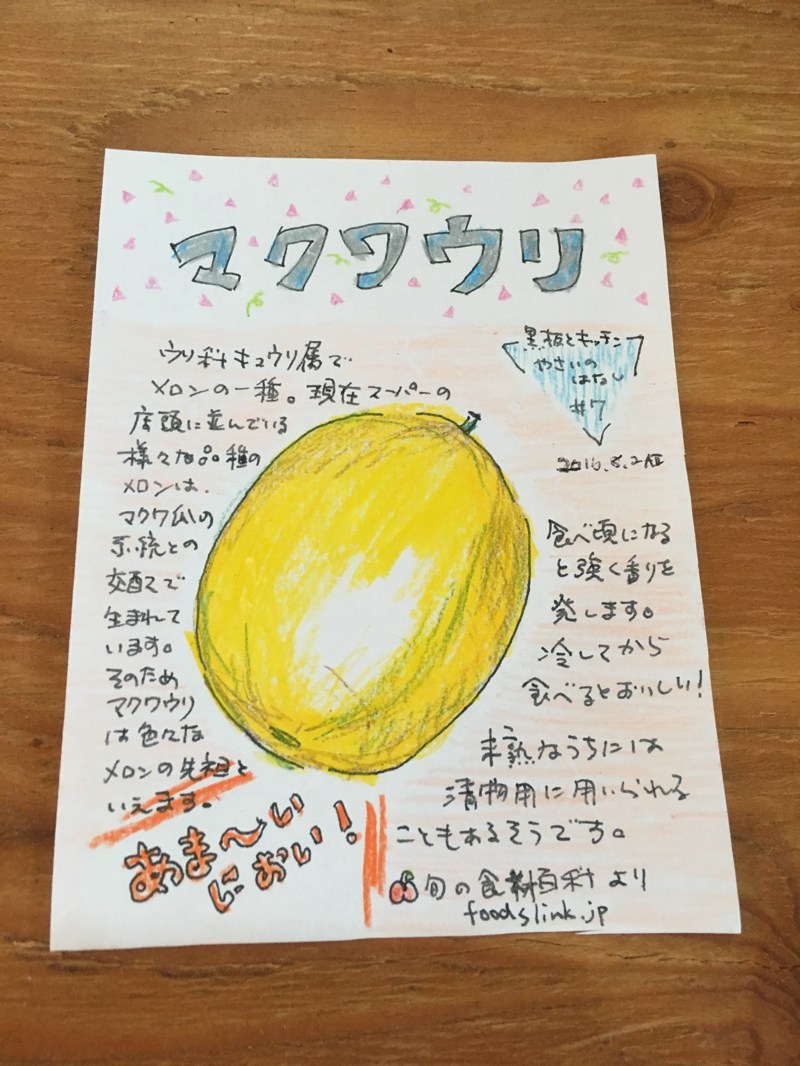 マクワウリ
黒板とキッチン
やさいの
はなし
#7
ウリ科キュウリ属で
メロンの一種。現在スーパーの
店頭に並んでいる
様々な品種の
メロンは、
マクワ瓜の
系統との
交配で
生まれて
います。
そのため
マクワウリ
は色々な
メロンの先祖と
いえます。
あま〜い
におい!
食べ頃になる
と強く香りを
発します。
冷してから
食べるとおいしい!
未熟なうちには
漬物用に用いられる
こともあるそうです。
旬の食材百科より
foodslink.jp